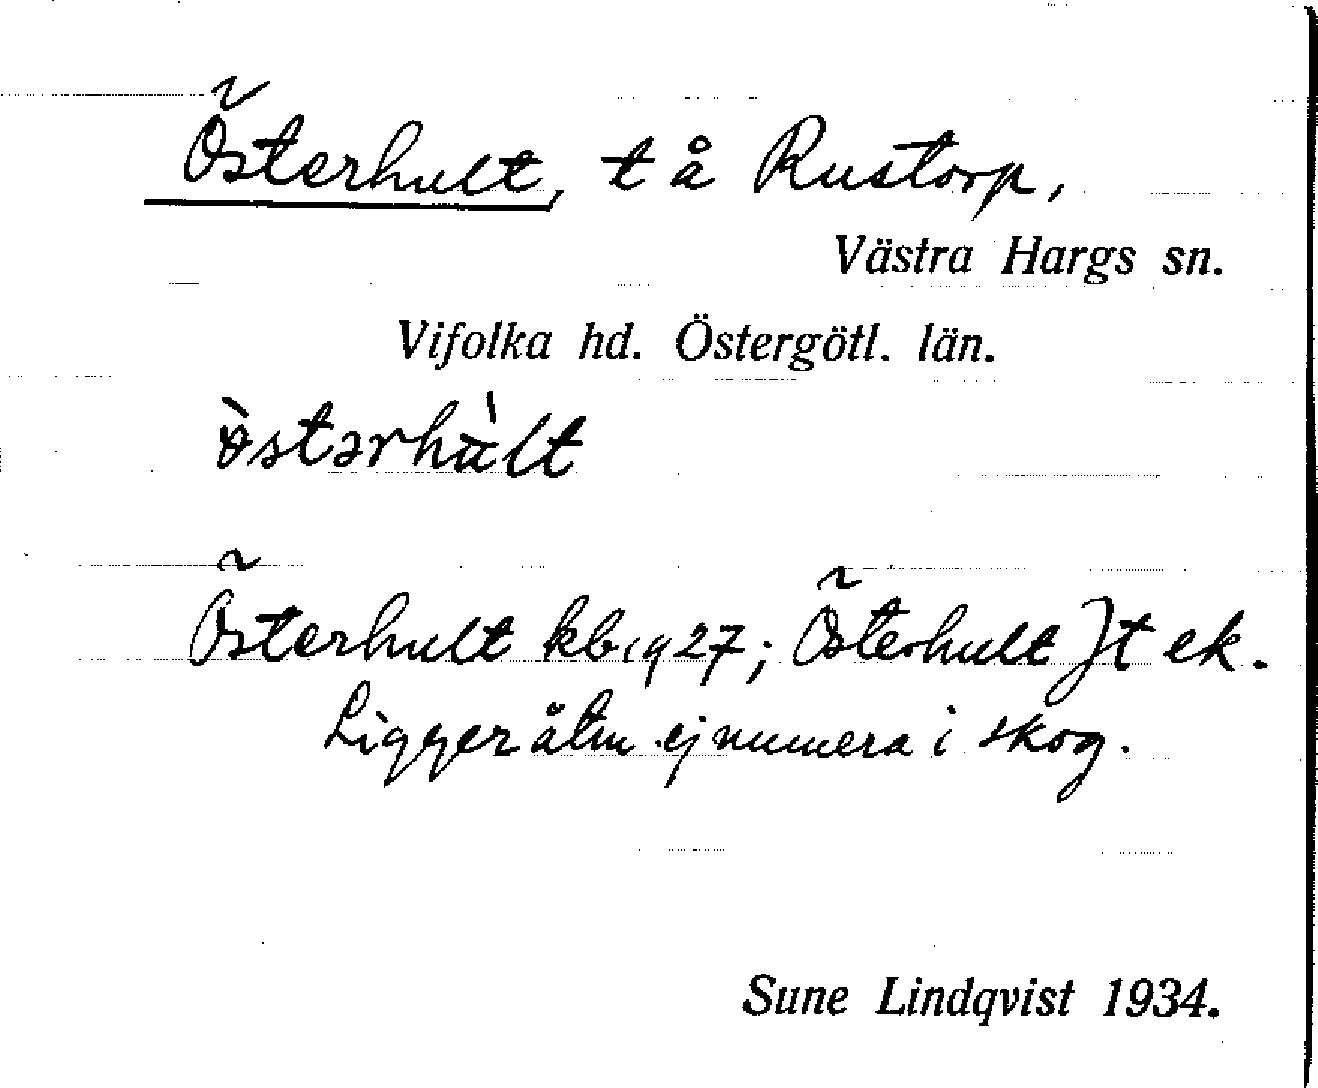 Österhult, t å Rustorp,
Västra Hargs sn.
Vifolka hd. Östergötl. län.
ə̀stərhùlt
Österhult kb 1927; Österhult Jt ek.
Ligger åtm. ej numera i skog.
Sune Lindqvist 1934.